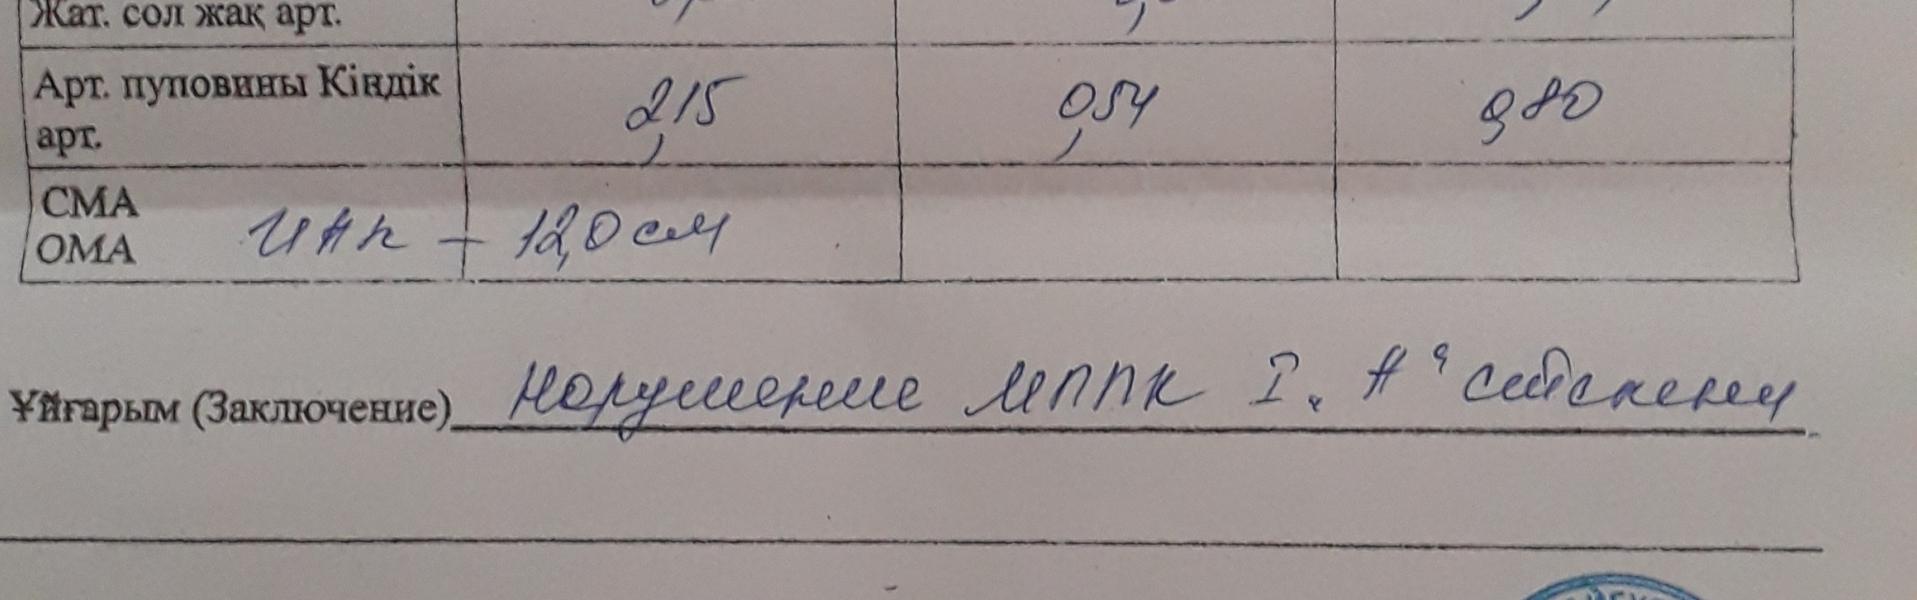 Жат. сол жақ арт.
Арт. пуповины Кіндік арт. 2,15 0,54 0,80
СМА
ОМА ИАЖ - 12,0 см
Ұйғарым (Заключение) Нарушение МППК I "А" степени